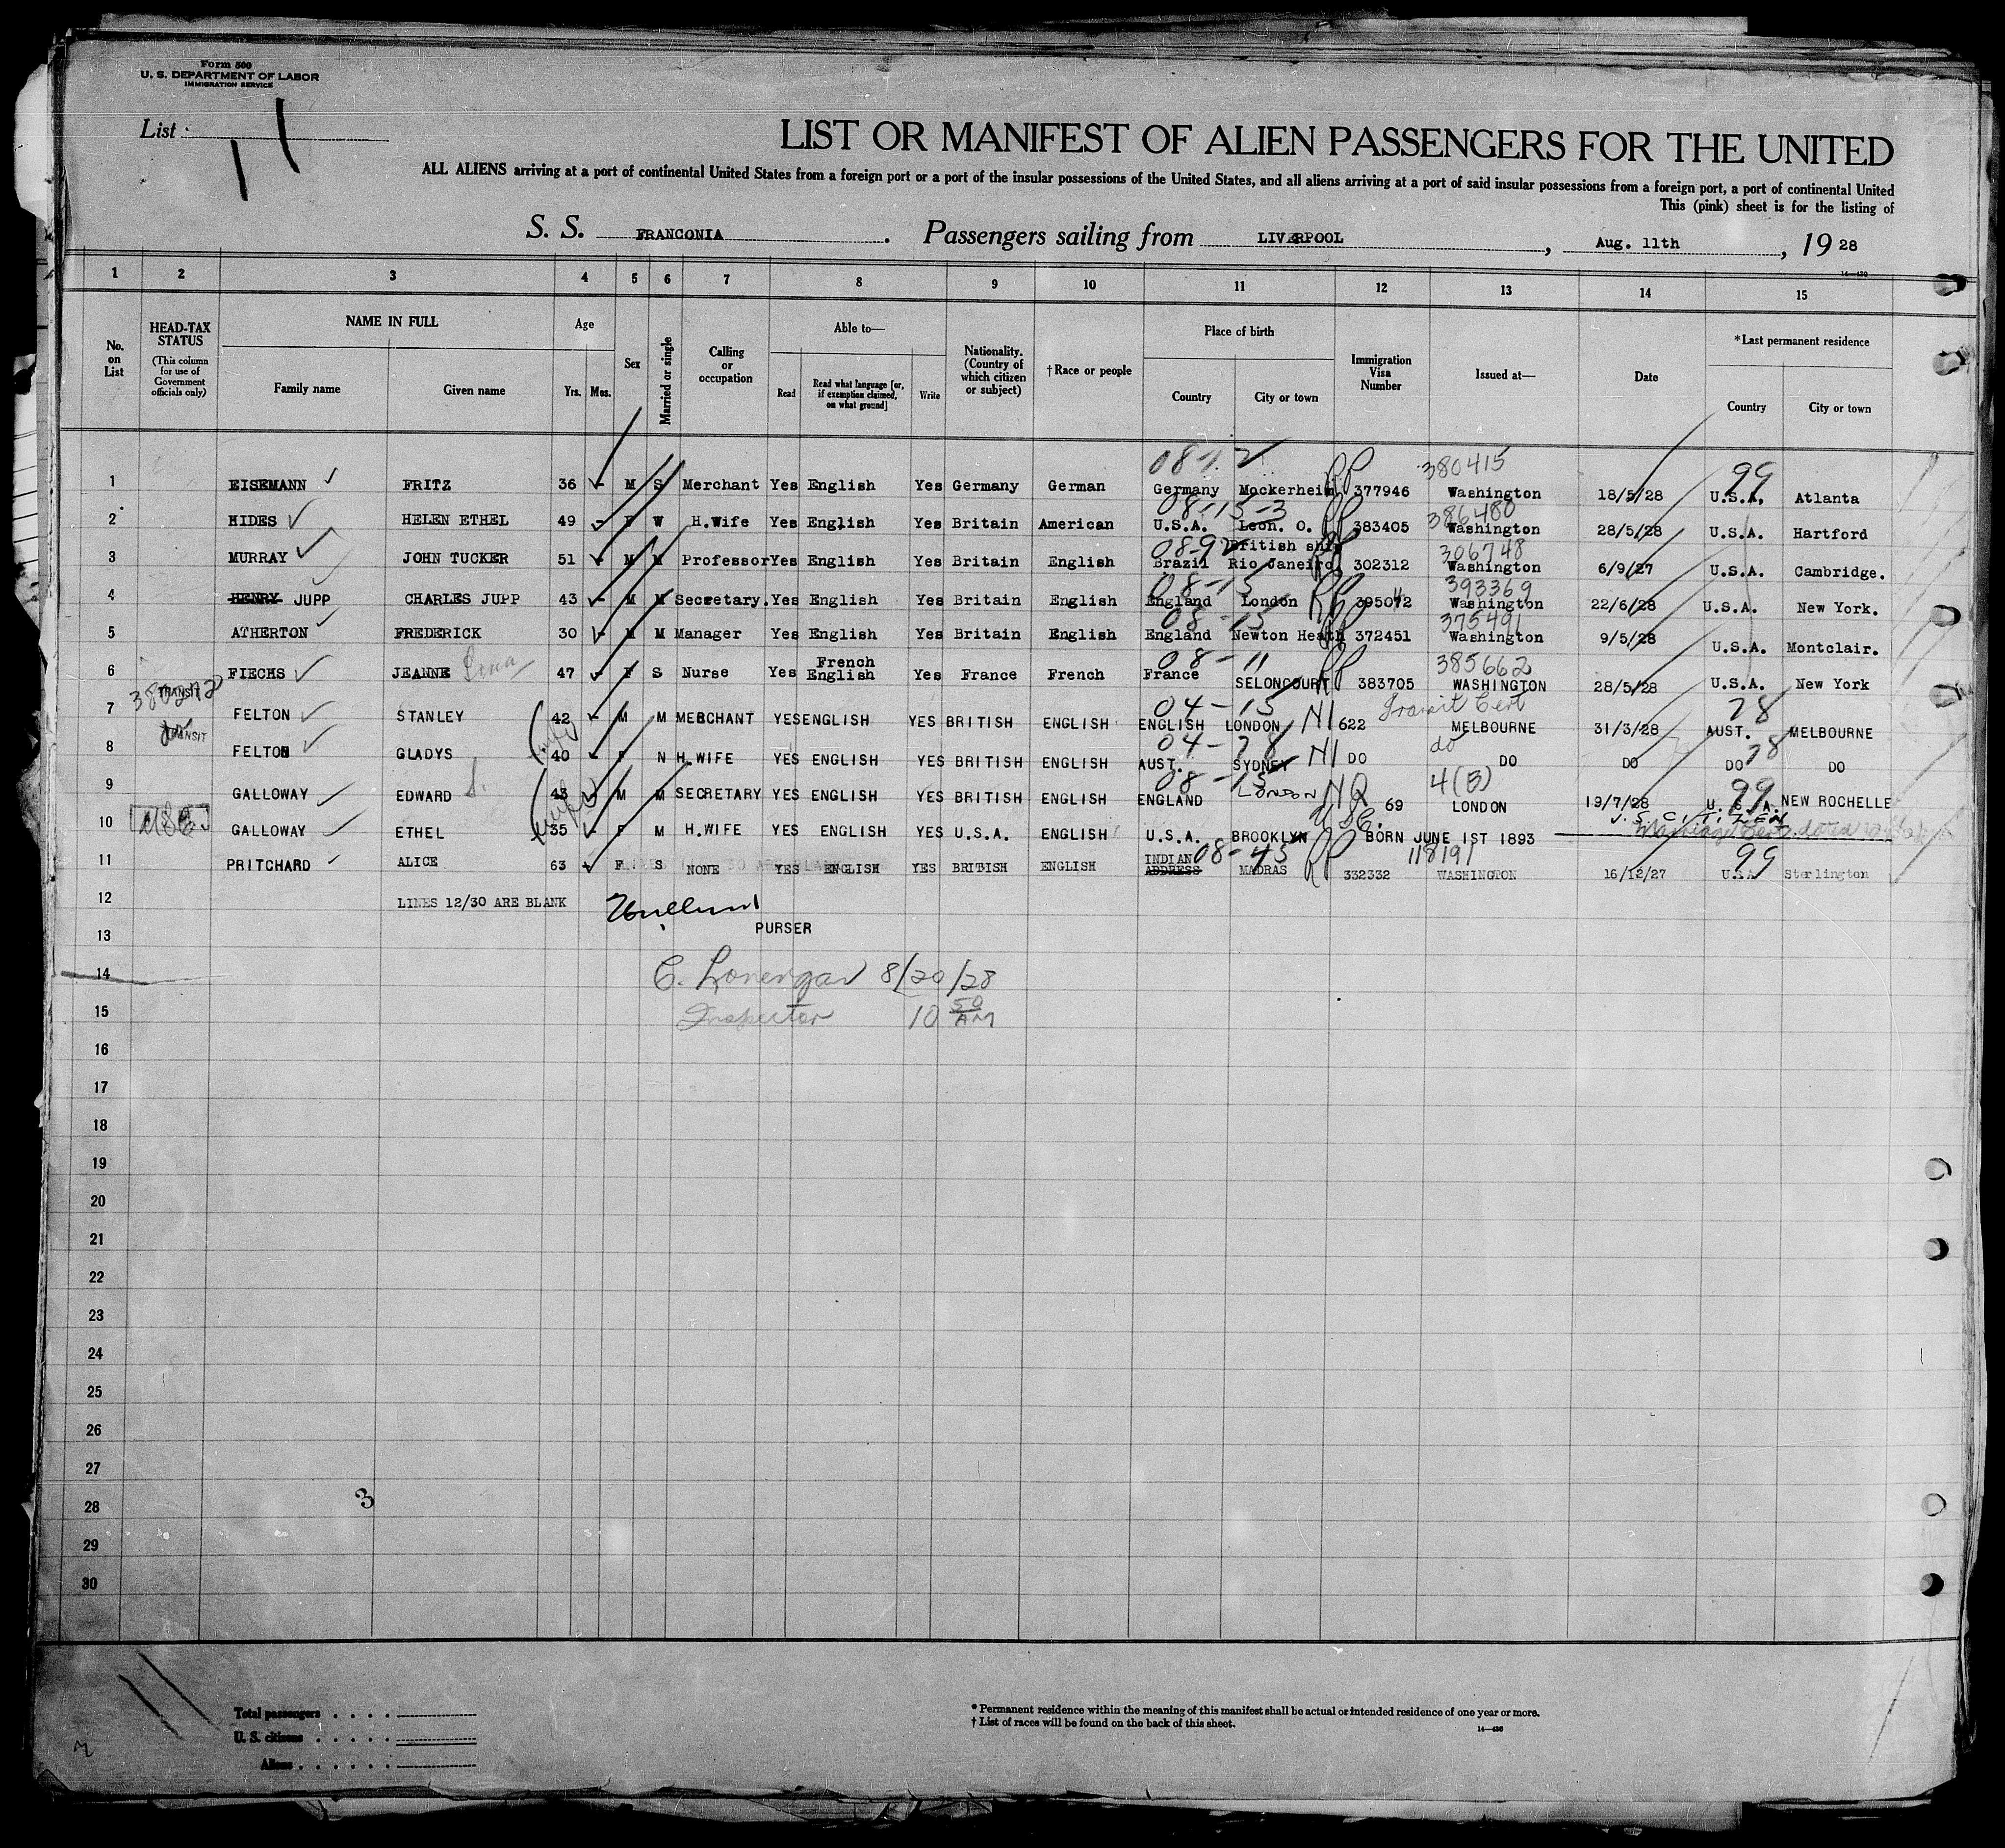 Form 500
U. S. DEPARTMENT OF LABOR
IMMIGRATION SERVICE
List 11
LIST OR MANIFEST OF ALIEN PASSENGERS FOR THE UNITED
ALL ALIENS arriving at a port of continental United States from a foreign port or a port of the insular possessions of the United States, and all aliens arriving at a port of said insular possessions from a foreign port, a port of continental United
This (pink) sheet is for the listing of
S. S. FRANCONIA . Passengers sailing from LIVERPOOL , Aug. 11th , 19 28
14—430
1 2 3 4 5 6 7 8 9 10 11 12 13 14 15
No. on List
HEAD-TAX STATUS (This column for use of Government officials only)
NAME IN FULL
Family name Given name
Age
Yrs. Mos.
Sex
Married or single
Calling or occupation
Able to—
Read Read what language [or, if exemption claimed, on what ground] Write
Nationality. (Country of which citizen or subject)
†Race or people
Place of birth
Country City or town
Immigration Visa Number
Issued at—
Date
*Last permanent residence
Country City or town
380415 99
1 EISEMANN FRITZ 36 - M S Merchant Yes English Yes Germany German Germany Mockerheim 377946 Washington 18/5/28 U.S.A. Atlanta
08-15-3 386480
2 HIDES HELEN ETHEL 49 - F W H.Wife Yes English Yes Britain American U.S.A. Leon. O. 383405 Washington 28/5/28 U.S.A. Hartford
08-92 British ship 306748
3 MURRAY JOHN TUCKER 51 - M M Professor Yes English Yes Britain English Brazil Rio Janeiro 302312 Washington 6/9/27 U.S.A. Cambridge.
08-15 393369
4 HENRY JUPP CHARLES JUPP 43 - M M Secretary. Yes English Yes Britain English England London 395072 Washington 22/6/28 U.S.A. New York.
08-15 375491
5 ATHERTON FREDERICK 30 - M M Manager Yes English Yes Britain English England Newton Heath 372451 Washington 9/5/28 U.S.A. Montclair.
08-11 385662
6 FIECHS JEANNE 47 - F S Nurse Yes French English Yes France French France SELONCOURT 383705 WASHINGTON 28/5/28 U.S.A. New York
TRANSIT 04-15 Transit Cert 78
7 FELTON STANLEY 42 - M M MERCHANT YES ENGLISH YES BRITISH ENGLISH ENGLISH LONDON 622 MELBOURNE 31/3/28 AUST. MELBOURNE
do TRANSIT 04-78 do 78
8 FELTON GLADYS 40 - F N H.WIFE YES ENGLISH YES BRITISH ENGLISH AUST. SYDNEY DO DO DO DO DO
08-15 NQ 4(B) 99
9 GALLOWAY EDWARD S. 43 - M M SECRETARY YES ENGLISH YES BRITISH ENGLISH ENGLAND LONDON 69 LONDON 19/7/28 U.S.A. NEW ROCHELLE
USC. U.S. CITIZEN
10 GALLOWAY ETHEL 35 - F M H.WIFE YES ENGLISH YES U.S.A. ENGLISH U.S.A. BROOKLYN BORN JUNE 1ST 1893
08-45 118191 99
11 PRITCHARD ALICE 63 F S NONE YES ENGLISH YES BRITISH ENGLISH INDIAN ADDRESS MADRAS 332332 WASHINGTON 16/12/27 U.S.A. Sterlington
12 LINES 12/30 ARE BLANK
13 PURSER
14 C. Lonergan 8/20/28
15 Inspector 10 50 AM
16
17
18
19
20
21
22
23
24
25
26
27
28 3
29
30
11
Total passengers
U. S. citizens
Aliens
* Permanent residence within the meaning of this manifest shall be actual or intended residence of one year or more.
† List of races will be found on the back of this sheet.
14—430